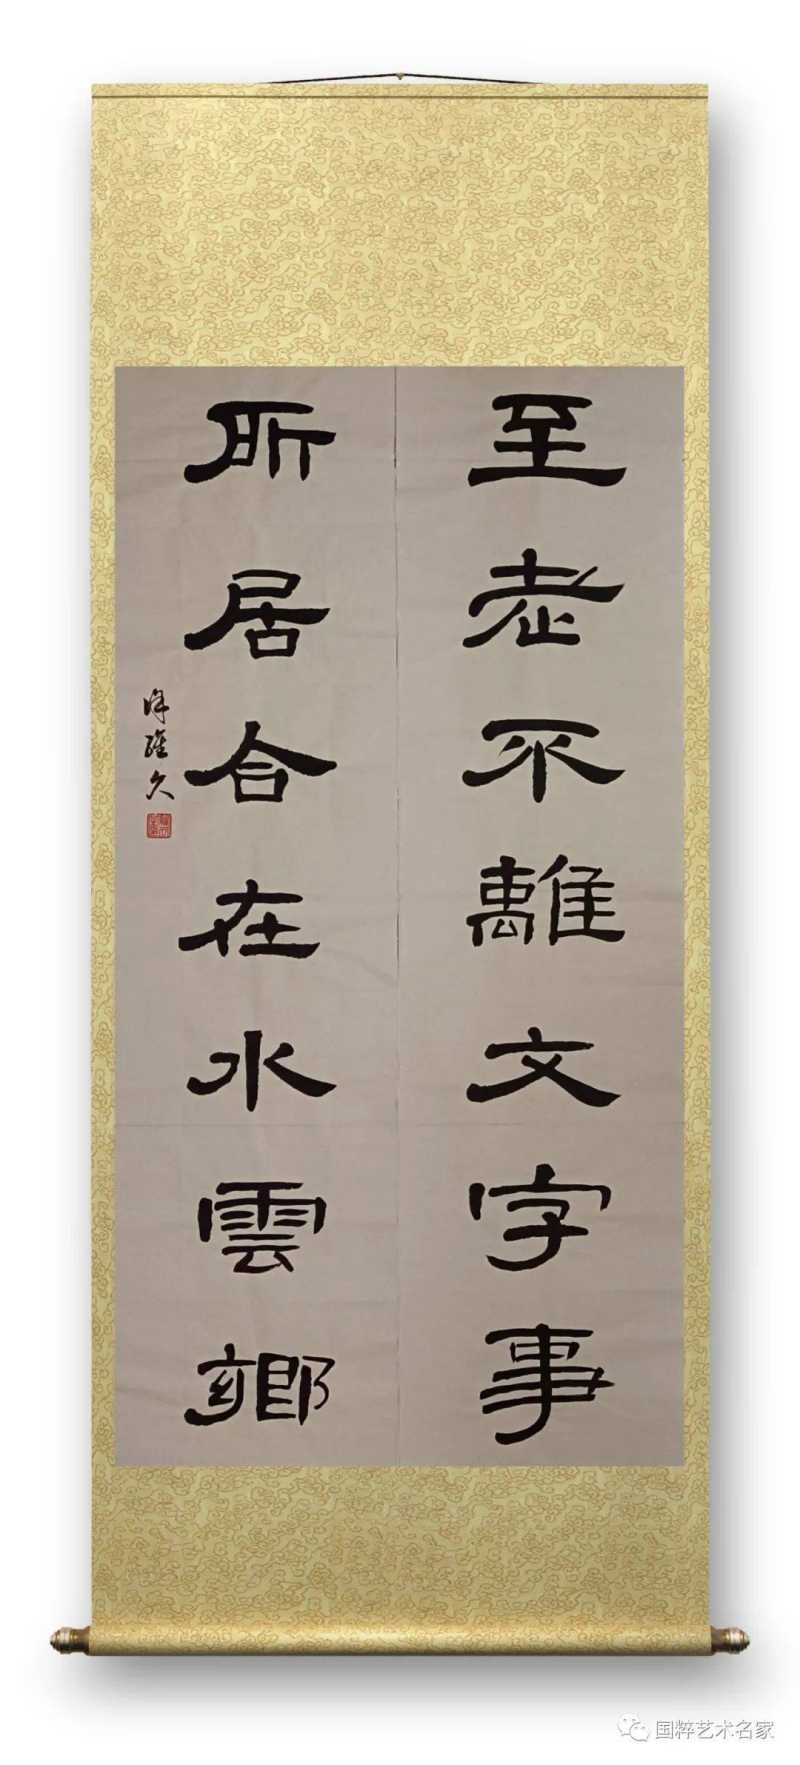 至老不離文字事
所居合在水雲鄉
维久
国粹艺术名家